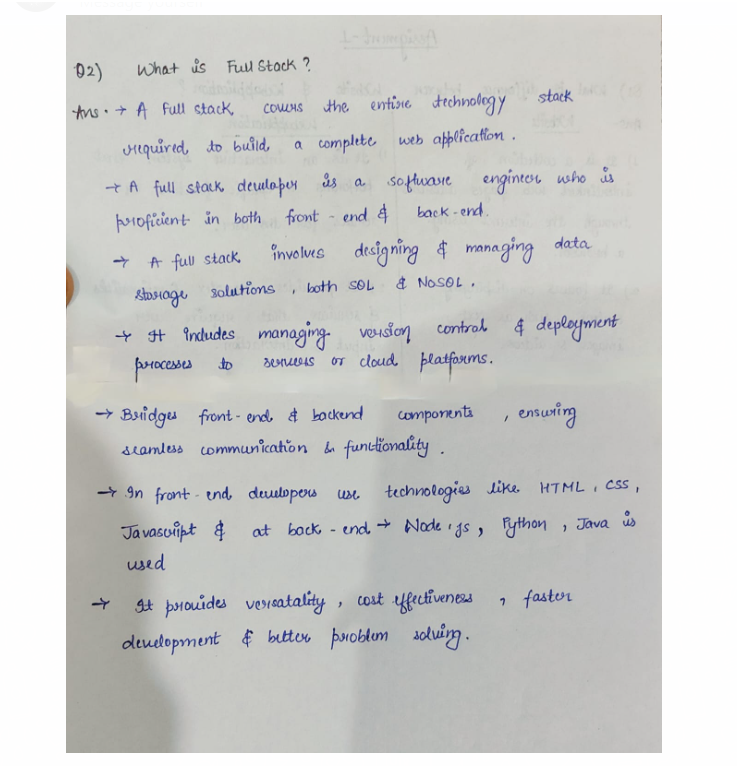 Q2) What is Full Stack ?
Ans. → A Full stack covers the entire technology stack
required to build a complete web application.
→ A full stack developer is a software engineer who is
proficient in both front-end & back-end.
→ A full stack involves designing & managing data
storage solutions, both SQL & NoSQL.
→ It includes managing version control & deployment
processes to servers or cloud platforms.
→ Bridges front-end & backend components, ensuring
seamless communication & functionality.
→ In front-end developers use technologies like HTML, CSS,
Javascript & at back-end → Node.js, Python, Java is
used
→ It provides versatality, cost effectiveness, faster
development & better problem solving.